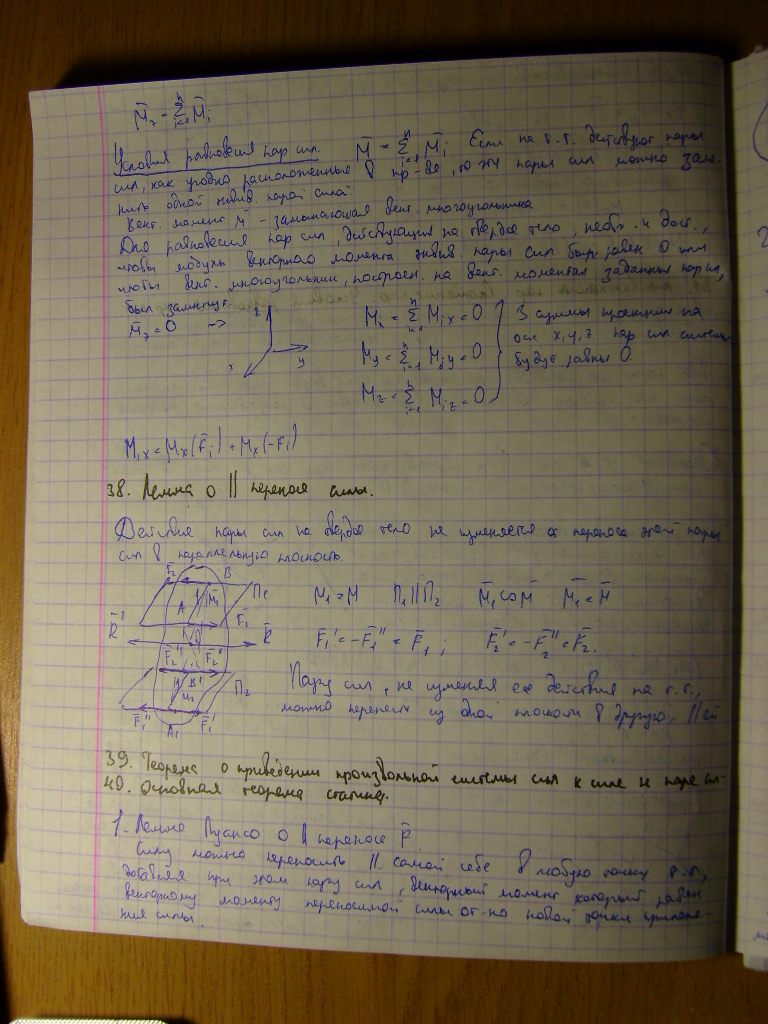 M̄₂ = Σ M̄ᵢ
Условия равновесия пар сил. M̄ = Σ M̄ᵢ Если на т.т. действуют пары
сил, как угодно расположенные в пр-ве, то эти пары сил можно заме-
нить одной эквив. парой силой
Вект. момент M̄ - замыкающая вект. многоугольника
Для равновесия пар сил, действующих на твердое тело, необх. и дост.,
чтобы модуль векторного момента эквив. пары сил был равен 0 или
чтобы вект. многоугольник, построен. на вект. моментах заданных пар сил,
был замкнут.
M̄₂ = 0 →
z
x
y
Mx = Σ Mix = 0
My = Σ Miy = 0
Mz = Σ Miz = 0
3 суммы проекции на
оси x, y, z пар сил системы
будут равны 0.
Mix = Mx(F̄i) + Mx(-F̄i)
38. Лемма о || переносе силы.
Действие пары сил на твердое тело не изменяется от переноса этой пары
сил в параллельную плоскость.
F̄₂ B
A M̄₁ П₁
F̄₁
R̄' O R̄
F̄₂'' F̄₂'
B₁ П₂
M₂
F̄₁'' A₁ F̄₁'
M₁ = M П₁||П₂ M̄₁ со M̄ M̄₁ = M̄
F̄₁' = -F̄₁'' = F̄₁; F̄₂' = -F̄₂'' = F̄₂.
Пару сил, не изменяя ее действия на т.т.,
можно перенести из одной плоскости в другую, || ей
39. Теорема о приведении произвольной системы сил к силе и паре сил-
40. основная теорема статики.
1. Лемма Пуансо о || переносе F̄
Силу можно переносить || самой себе в любую точку т.т.,
добавляя при этом пару сил, векторный момент который равен
векторному моменту переносимой силы от-но новой точки приложе-
ния силы.